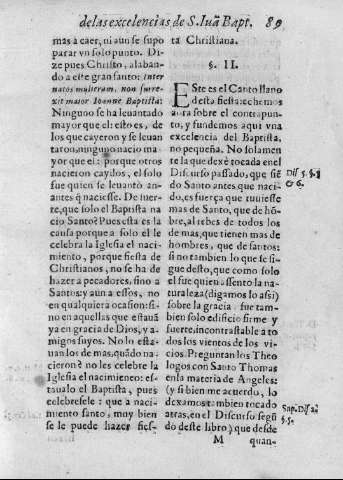 de las excelencias de S. Iuã Bapt. 89
mas a caer, ni aun se supo
parar vn solo punto. Di
ze pues Christo, alaban-
do a este gran santo: inter
natos mulierum, non surre-
xit maior Ioanne Baptista:
Ninguno se ha leuantado
mayor que el: esto es, de
los que cayeron y se leuan
taron, ninguno nacio ma
yor que el: porque otros
nacieron caydos, el solo
fue quien se leuantò an-
antes q̃ naciesse. De suer-
te, que solo el Baptista na
cio Santo? Pues esta es la
causa porque a solo el le
celebra la Iglesia el naci-
miento, porque fiesta de
Christianos, no se ha de
hazer a pecadores, sino a
Santos: y aun a essos, no
en qualquiera ocasion: si-
no en aquellas que estauã
ya en gracia de Dios, y a-
migos suyos. No lo esta-
uan los de mas, quãdo na-
cieron? no les celebre la
Iglesia el nacimiento: es-
taualo el Baptista, pues
celebresele: que a naci-
miento santo, muy bien
se le puede hazer fies-
ta Christiana.
§. II.
Este es el Canto llano
desta fiesta: echemos
aora sobre el contrapun-
to, y fundemos aqui vna
excelencia del Baptista,
no pequeña. No solamen
te la que dexè tocada en el
Discurso passado, que siẽ
do Santo antes que naci-
do, es fuerça que tuuiesse
mas de Santo, que de hõ-
bre, al rebes de todos los
de mas, que tienen mas de
hombres, que de santos:
si no tambien lo que se si-
gue desto, que como solo
el fue quien assento la na
turaleza (digamos lo assi)
sobre la gracia: fue tam-
bien solo edificio firme y
fuerte, incontrastable a to
dos los vientos de los vi-
cios. Preguntan los Theo
logos con Santo Thomas
en la materia de Angeles:
(y si bien me acuerdo, lo
dexamos tambien tocado
atras, en el Discurso segũ
do deste libro) que desde
M quan-
Dis. 5. §. 5
& 6.
Sup. Dis. 2.
§. 5.